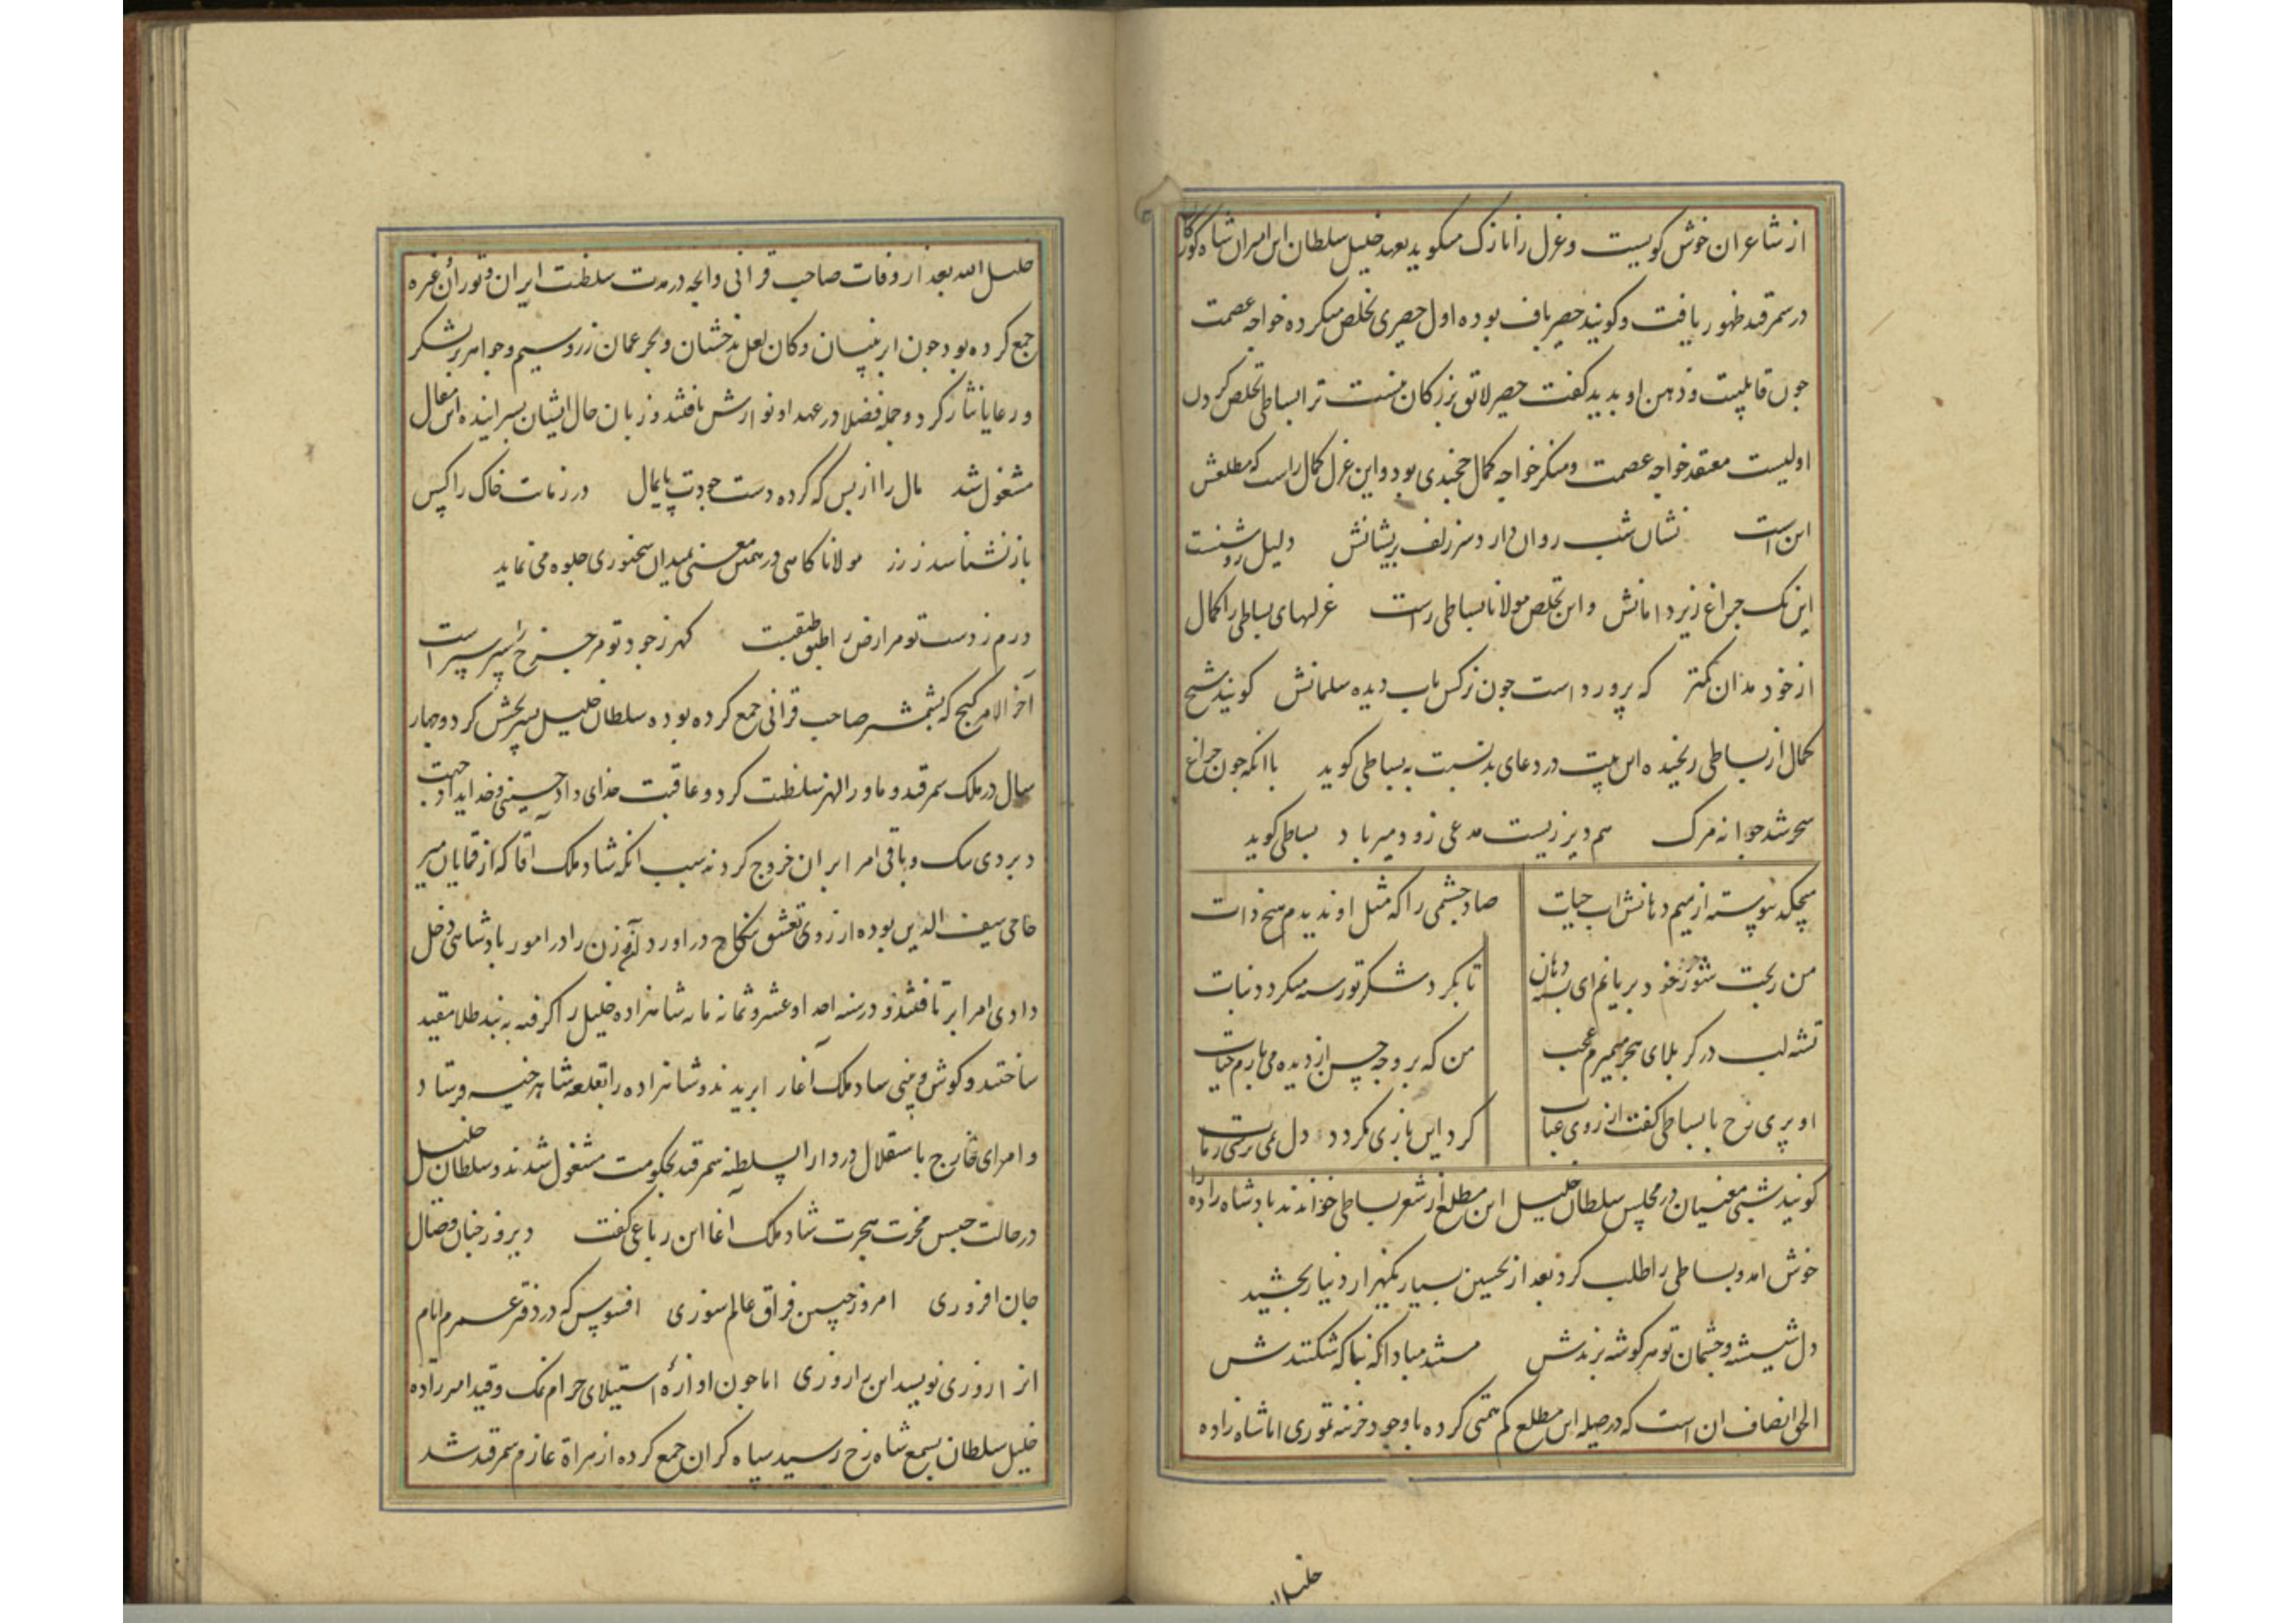 از شاعران خوش گویست و غزل را نازک میگوید بعهد خلیل سلطان ابن امیران شاه گورکان
در سمرقند ظهور یافت و گویند حصیر باف بوده اول حصیری تخلص میکرده خواجه عصمت
چون قابلیت و ذهن او بدید گفت حصیر لائق بزرگان نیست ترا بساطی تخلص کردن
اولیست معتقد خواجه عصمت و منکر خواجه کمال خجندی بود و این غزل کمال راست که مطلعش
این است نشان شب روان دارد سر زلف پریشانش دلیل روشنست
اینک چراغ زیر دامانش و این تخلص مولانا بساطی راست غزلهای بساطی را کمال
از خود مدان کمتر که پرورد است چون نرگس باب دیده سلمانش گویند شیخ
کمال از بساطی رنجیده این بیت در دعای بد نسبت به بساطی گوید با انکه چون چراغ
سحر شد جوانه مرگ هم دیر زیست مدعی زود میر باد بساطی گوید
میچکد پیوسته از میم دهانش اب حیات صاد چشمی را که مثل او ندیدم هیچ ذات
من ریخت شور خود بریانم ای پسته دهان تا بگرد شکر تو رسته میگردد نبات
تشنه لب در کربلای هجر میمیرم عجب من که بر وجه حسن از دیده می بارم حیات
او پری رخ با بساطی گفت از روی عتاب گرد این بازی مگرد دل نمی ترسی ز مات
گویند شبی مغنیان در مجلس سلطان خلیل این مطلع از شعر بساطی خواندند پادشاه زاده را
خوش امد و بساطی را طلب کرد بعد از تحسین بسیار یکهزار دینار بخشید
دل شیشه و چشمان تو هر گوشه برندش مستند مبادا که نباکه شکنندش
الحق انصاف ان است که در صله این مطلع کم همتی کرده با وجود خزینه تموری اما شاه زاده
خلیل الله بعد از وفات صاحب قرانی وانچه در مدت سلطنت ایران و توران غیره
جمع کرده بود چون ابر نیسان و کان لعل بدخشان و بحر عمان زر و سیم و جواهر بر لشکر
و رعایا نثار کرد و جمله فضلا در عهد او نوازش یافتند و زبان حال ایشان بسراینده این مقال
مشغول شد مال را از بس که کرده دست جودت پایمال در زمانت خاک را کس
باز نشناسد ز زر مولانا کاهی در همین معنی بمیدان سخنوری جلوه می نماید
درم ز دست تو مر ارض را طبق طبقست گهر ز جود تو مر چرخ را سپر سپر است
آخر الامر گنج که بشمشیر صاحب قرانی جمع کرده بوده سلطان خلیل بسپر بخش کرد و چهار
سال در ملک سمرقند و ماورالنهر سلطنت کرد و عاقبت خدای داد حسینی و خدایداد جهت
و بردی بیک و باقی امرا بر ان خروج کردند سبب انکه شاد ملک آقا که از قمایان میر
حاجی سیف الدین بوده از روی تعشق بنکاح در اورد و آن زن را در امور پادشاهی دخل
دادی امرا بر تافتند و در سنه احد او عشر و ثمانمایه شاهزاده خلیل را گرفته به بند طلا مقید
ساختند و گوش و بینی شاد ملک آغا را ببریدند و شاهزاده را بقلعه شاهرخیه فرستاد
و امرای خارج باستقلال در دارالسلطنه سمرقند بحکومت مشغول شدند و سلطان خلیل
در حالت حبس هجرت شاد ملک آغا این رباعی گفت دیروز چنان وصال
جان افروزی امروز چنین فراق عالم سوزی افسوس که در دفتر عمرم ایام
انرا روزی نویسد این را روزی اما چون اوازۀ استیلای حرام نمک و قید امیر زاده
خلیل سلطان بسمع شاه رخ رسید سپاه گران جمع کرده از هراة عازم سمرقند شد
خلیل الله